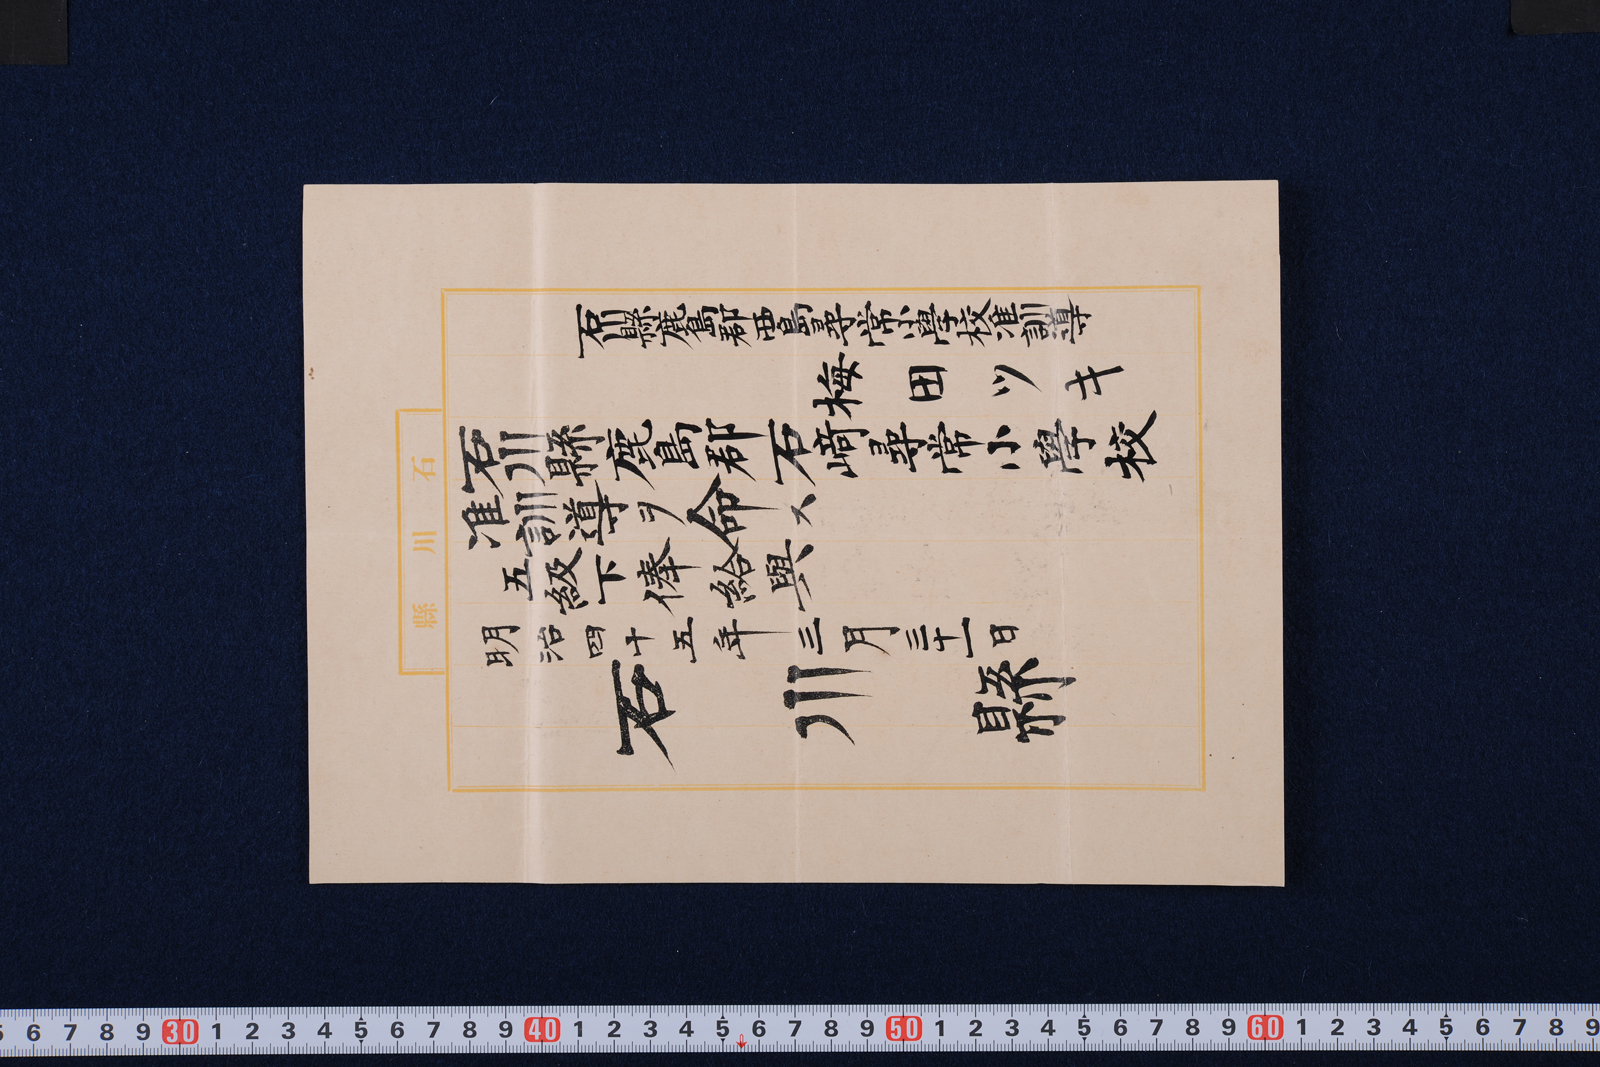 石川縣鹿島郡西島尋常小學校准訓導
梅田ツキ
石川縣鹿島郡石﨑尋常小學校
准訓導ヲ命ス
五級下俸給與
明治四十五年三月三十一日
石川縣
石川縣
5 6 7 8 9 30 1 2 3 4 5 6 7 8 9 40 1 2 3 4 5 6 7 8 9 50 1 2 3 4 5 6 7 8 9 60 1 2 3 4 5 6 7 8 9